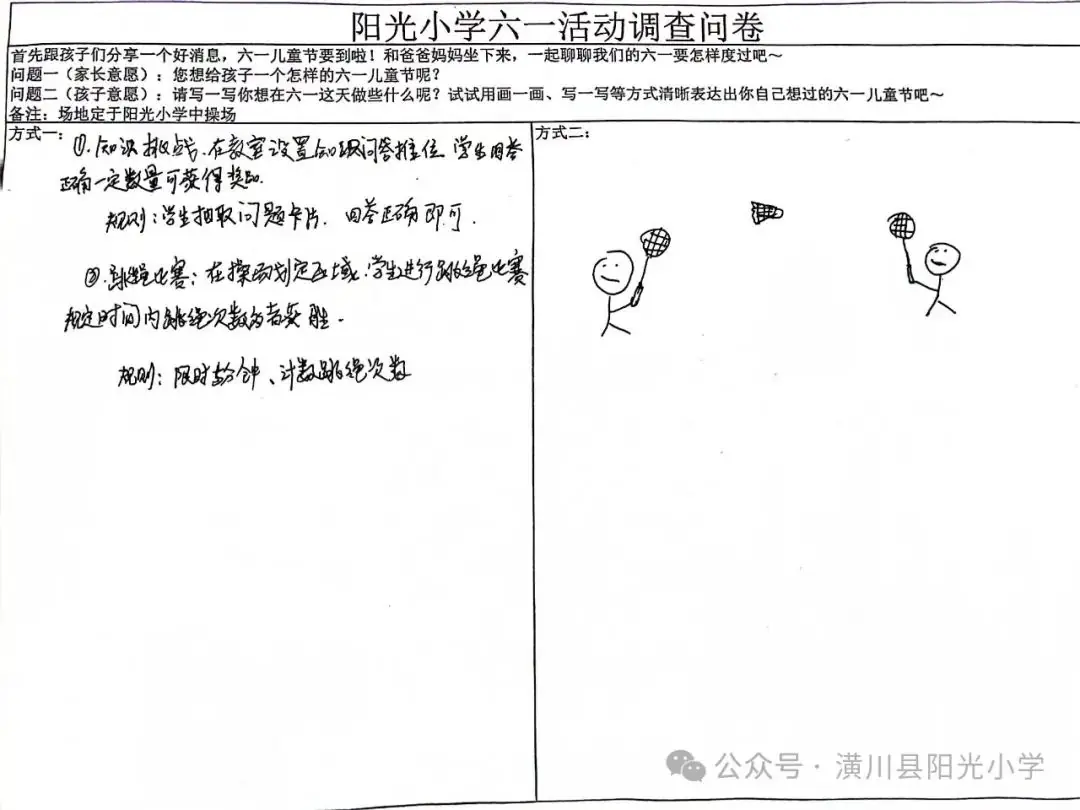 阳光小学六一活动调查问卷
首先跟孩子们分享一个好消息，六一儿童节要到啦！和爸爸妈妈坐下来，一起聊聊我们的六一要怎样度过吧～
问题一（家长意愿）：您想给孩子一个怎样的六一儿童节呢？
问题二（孩子意愿）：请写一写你想在六一这天做些什么呢？试试用画一画、写一写等方式清晰表达出你自己想过的六一儿童节吧～
备注：场地定于阳光小学中操场
方式一：
①.知识挑战、在教室设置知识问答摊位 学生回答
正确一定数量可获得奖励.
规则：学生抽取问题卡片. 回答正确即可.
②.跳绳比赛：在操场划定区域.学生进行跳绳比赛
规定时间内跳绳次数多者获胜.
规则：限时 分钟、计数跳绳次数
方式二：
公众号·潢川县阳光小学